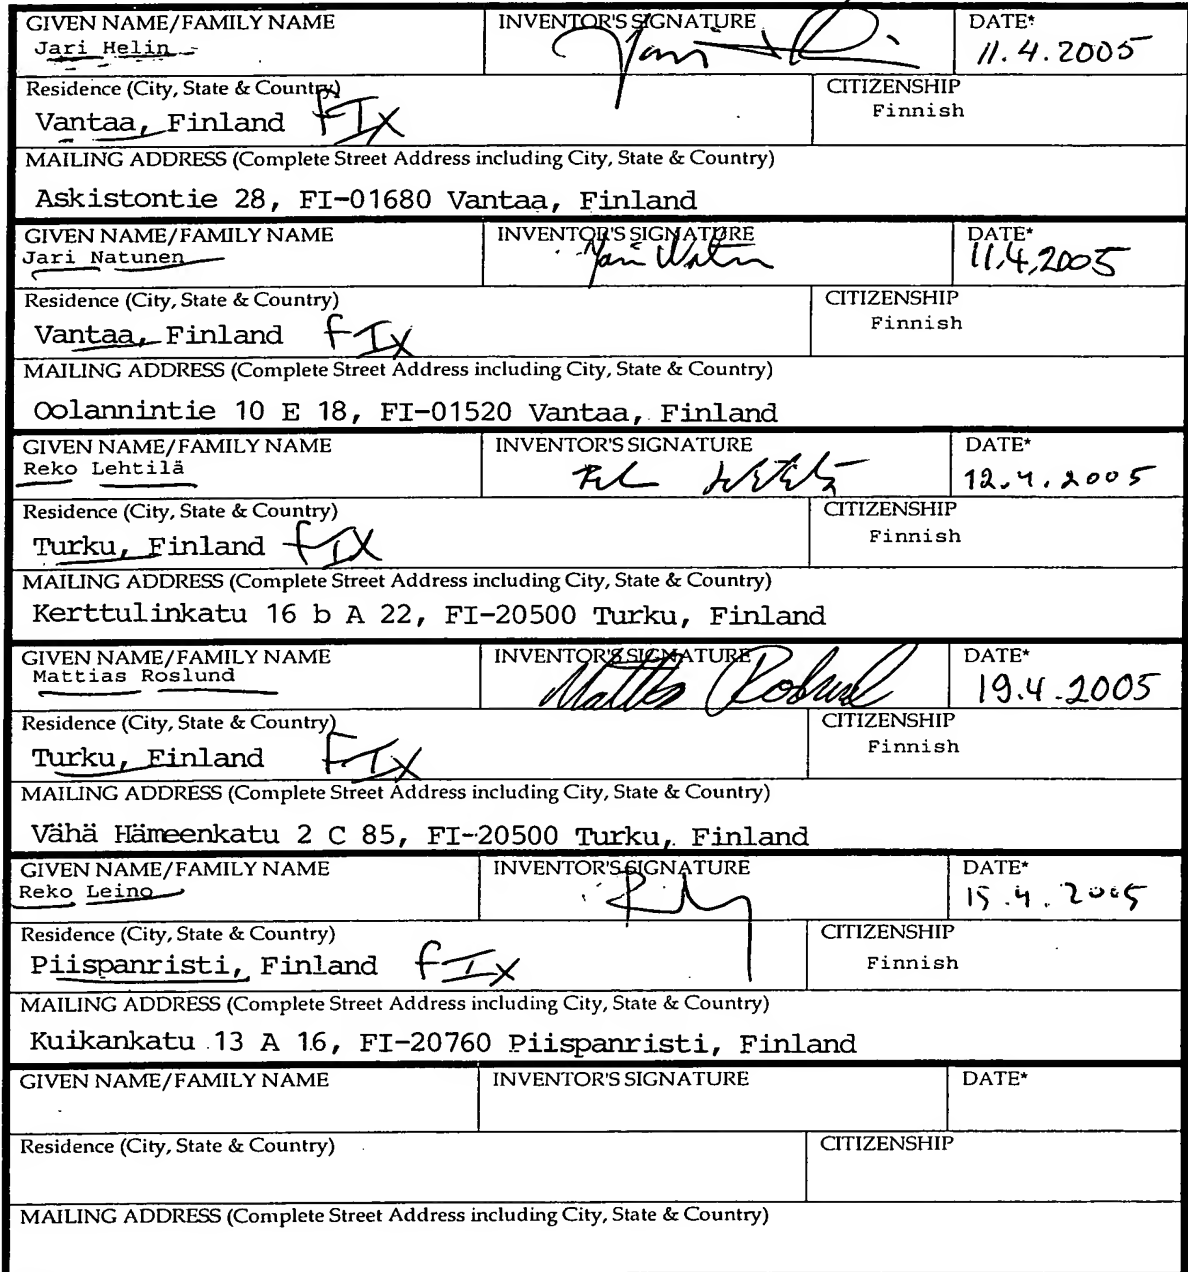 GIVEN NAME/FAMILY NAME INVENTOR'S SIGNATURE DATE*
Jari Helin 11.4.2005
Residence (City, State & Country) CITIZENSHIP
Vantaa, Finland FIX Finnish
MAILING ADDRESS (Complete Street Address including City, State & Country)
Askistontie 28, FI-01680 Vantaa, Finland
GIVEN NAME/FAMILY NAME INVENTOR'S SIGNATURE DATE*
Jari Natunen 11.4.2005
Residence (City, State & Country) CITIZENSHIP
Vantaa, Finland FIX Finnish
MAILING ADDRESS (Complete Street Address including City, State & Country)
Oolannintie 10 E 18, FI-01520 Vantaa, Finland
GIVEN NAME/FAMILY NAME INVENTOR'S SIGNATURE DATE*
Reko Lehtilä 12.4.2005
Residence (City, State & Country) CITIZENSHIP
Turku, Finland FIX Finnish
MAILING ADDRESS (Complete Street Address including City, State & Country)
Kerttulinkatu 16 b A 22, FI-20500 Turku, Finland
GIVEN NAME/FAMILY NAME INVENTOR'S SIGNATURE DATE*
Mattias Roslund 19.4.2005
Residence (City, State & Country) CITIZENSHIP
Turku, Finland FIX Finnish
MAILING ADDRESS (Complete Street Address including City, State & Country)
Vähä Hämeenkatu 2 C 85, FI-20500 Turku, Finland
GIVEN NAME/FAMILY NAME INVENTOR'S SIGNATURE DATE*
Reko Leino 15.4.2005
Residence (City, State & Country) CITIZENSHIP
Piispanristi, Finland FIX Finnish
MAILING ADDRESS (Complete Street Address including City, State & Country)
Kuikankatu 13 A 16, FI-20760 Piispanristi, Finland
GIVEN NAME/FAMILY NAME INVENTOR'S SIGNATURE DATE*
Residence (City, State & Country) CITIZENSHIP
MAILING ADDRESS (Complete Street Address including City, State & Country)